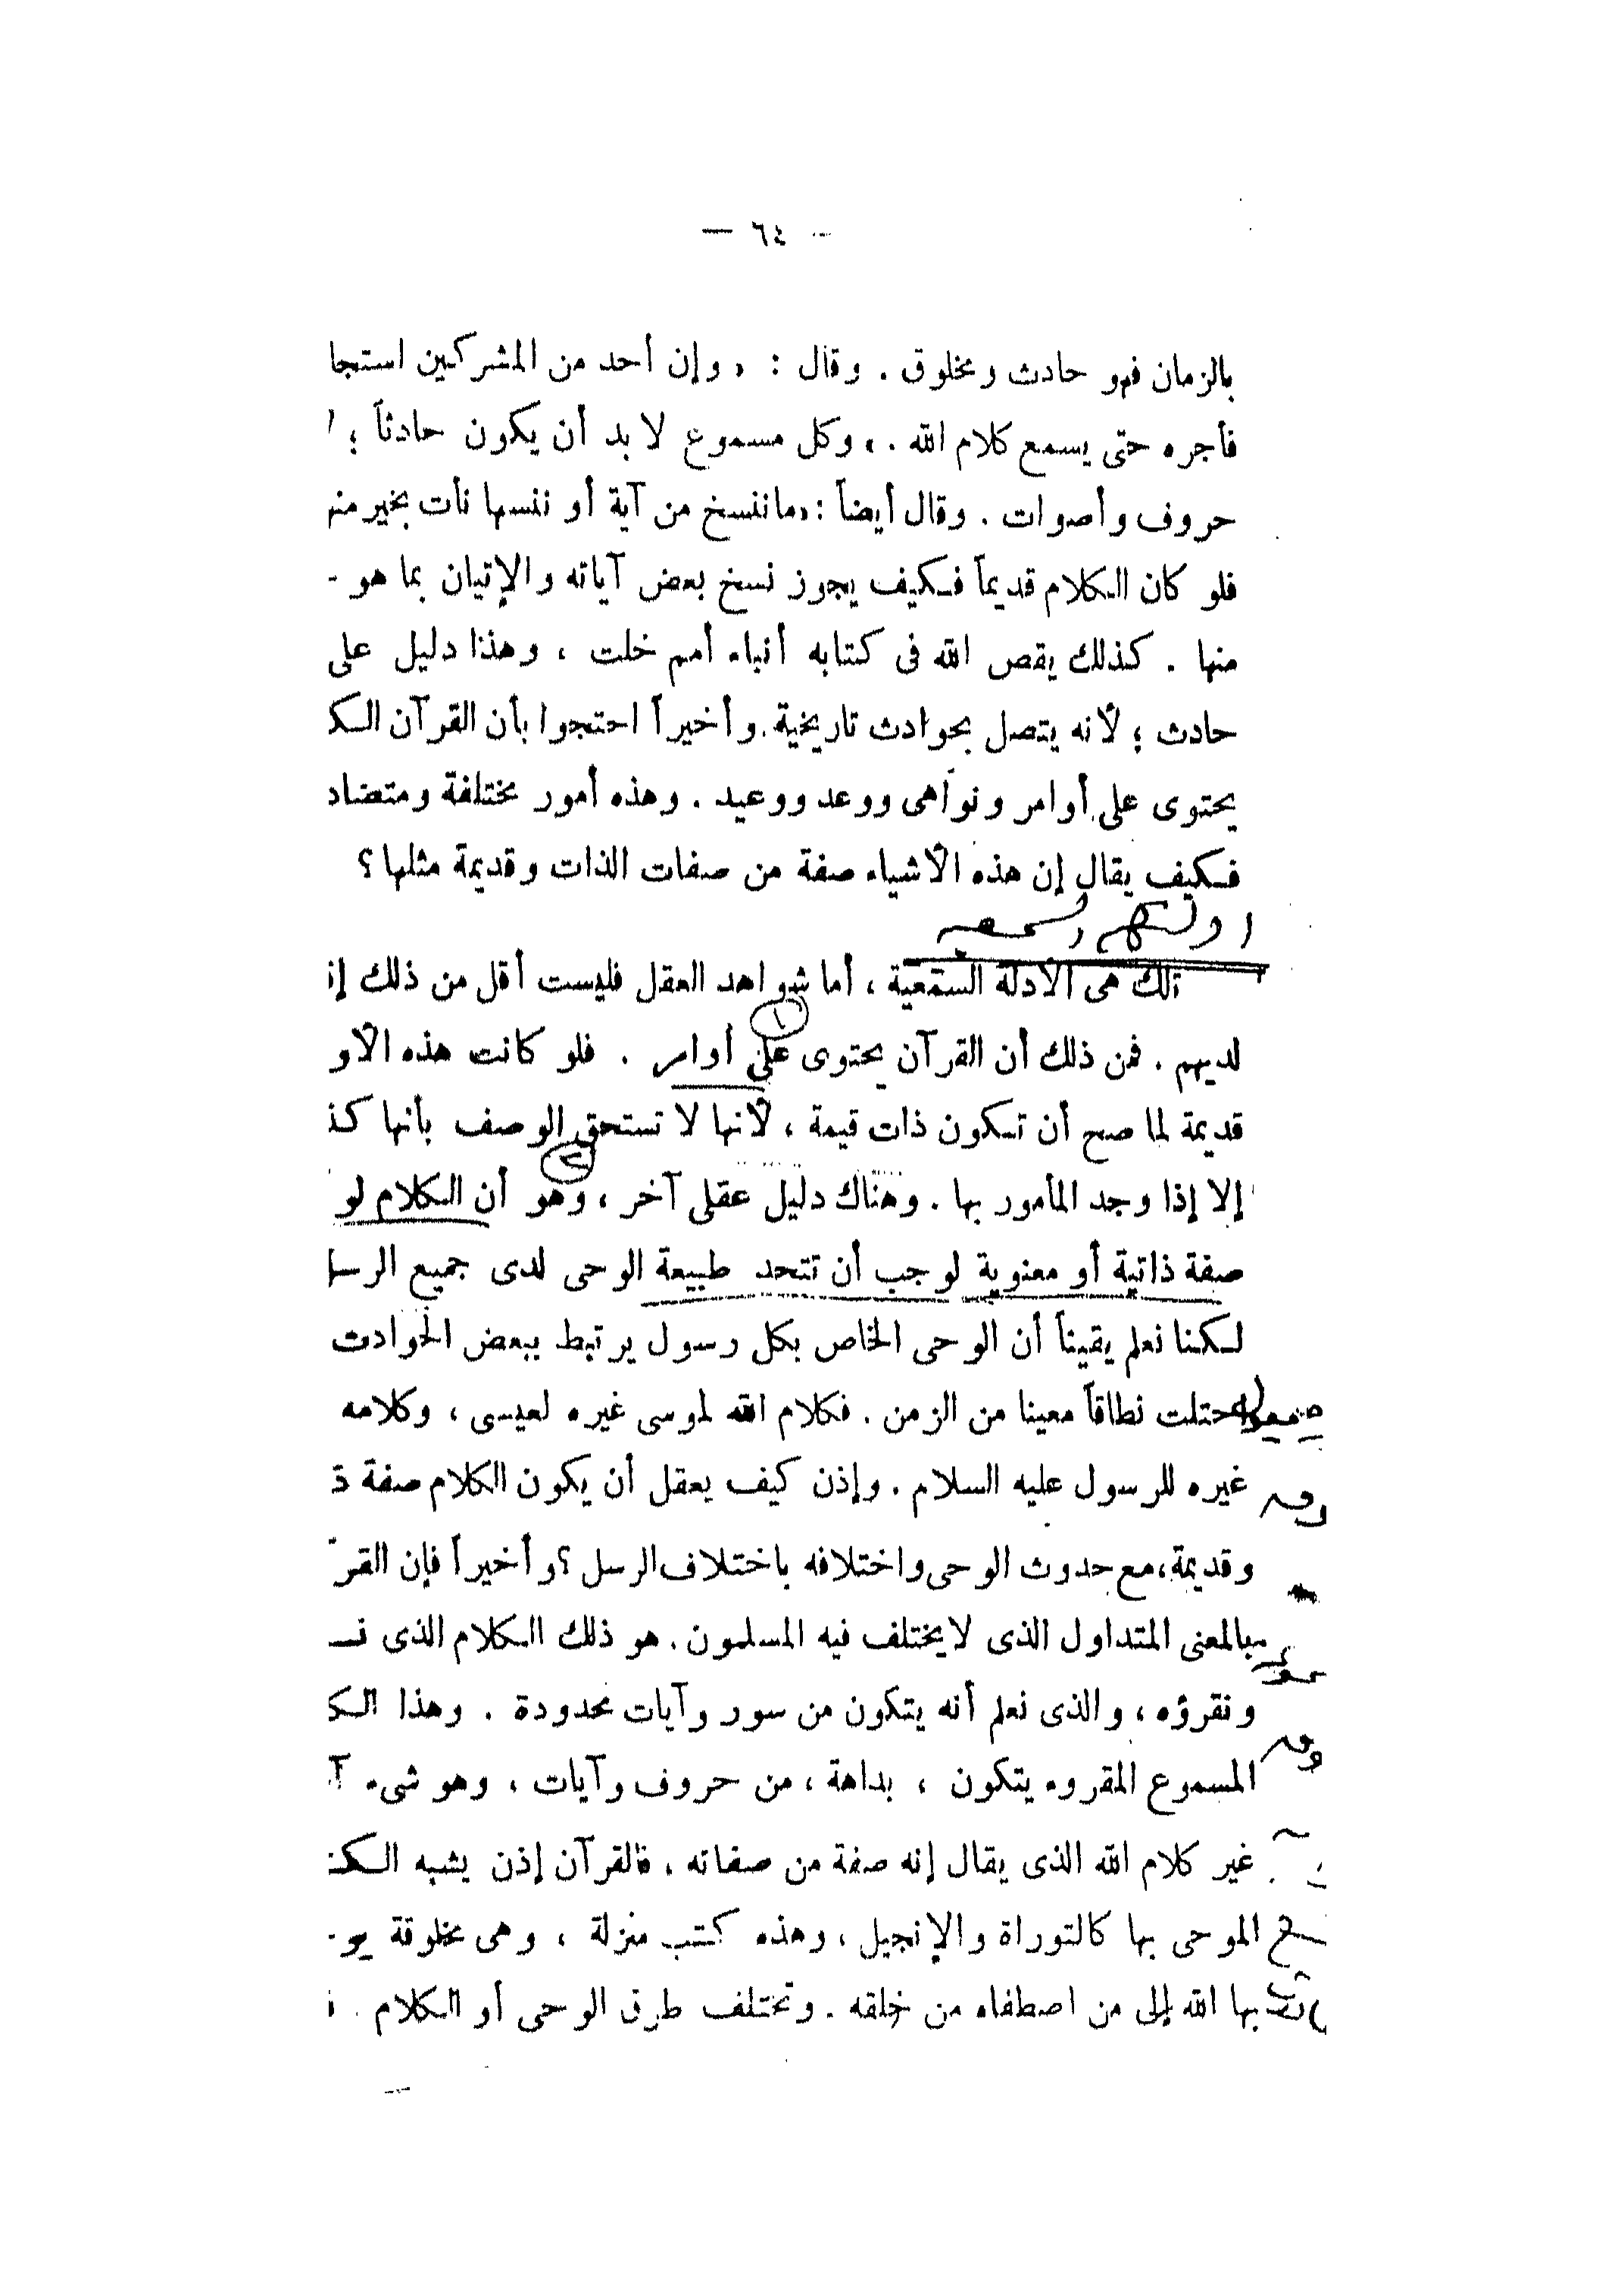 — ٦٤ —
بالزمان فهو حادث ومخلوق . وقال : « وإن أحد من المشركين استجا
فأجره حتى يسمع كلام الله . » وكل مسموع لا بد أن يكون حادثاً ؛
حروف وأصوات . وقال أيضاً : « ماننسخ من آية أو ننسها نأت بخير منها
فلو كان الكلام قديماً فكيف يجوز نسخ بعض آياته والإتيان بما هو
منها . كذلك يقص الله فى كتابه أنباء أمم خلت ، وهذا دليل على
حادث ؛ لأنه يتصل بحوادث تاريخية . وأخيراً احتجوا بأن القرآن الك
يحتوى على أوامر ونواهى ووعد ووعيد . وهذه أمور مختلفة ومتضاد
فكيف يقال إن هذه الأشياء صفة من صفات الذات وقديمة مثلها ؟
تلك هى الأدلة السمعية ، أما شواهد العقل فليست أقل من ذلك إة
١
لديهم . فمن ذلك أن القرآن يحتوى على أوامر . فلو كانت هذه الأو
قديمة لما صح أن تكون ذات قيمة ، لأنها لا تستحق الوصف بأنها كذ
٢
إلا إذا وجد المأمور بها . وهناك دليل عقلى آخر ، وهو أن الكلام لو
صفة ذاتية أو معنوية لوجب أن تتحد طبيعة الوحى لدى جميع الرسل
لكننا نعلم يقيناً أن الوحى الخاص بكل رسول يرتبط ببعض الحوادث
احتلت نطاقاً معينا من الزمن . فكلام الله لموسى غيره لعيسى ، وكلامه
غيره للرسول عليه السلام . وإذن كيف يعقل أن يكون الكلام صفة ذ
وقديمة ، مع حدوث الوحى واختلافه باختلاف الرسل ؟ وأخيراً فإن القرآ
بالمعنى المتداول الذى لا يختلف فيه المسلمون . هو ذلك الكلام الذى نس
ونقرؤه ، والذى نعلم أنه يتكون من سور وآيات محدودة . وهذا الك
المسموع المقروء يتكون ، بداهة ، من حروف وآيات ، وهو شىء آ
غير كلام الله الذى يقال إنه صفة من صفاته . فالقرآن إذن يشبه الكت
الموحى بها كالتوراة والإنجيل ، وهذه كتب منزلة ، وهى مخلوقة يو
بها الله إلى من اصطفاه من خلقه . وتختلف طرق الوحى أو الكلام .